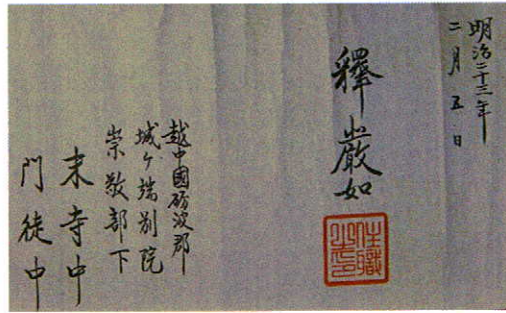 明治二十三年
二月五日
釋嚴如
越中國砺波郡
城ヶ端別院
崇敬部下
末寺中
門徒中